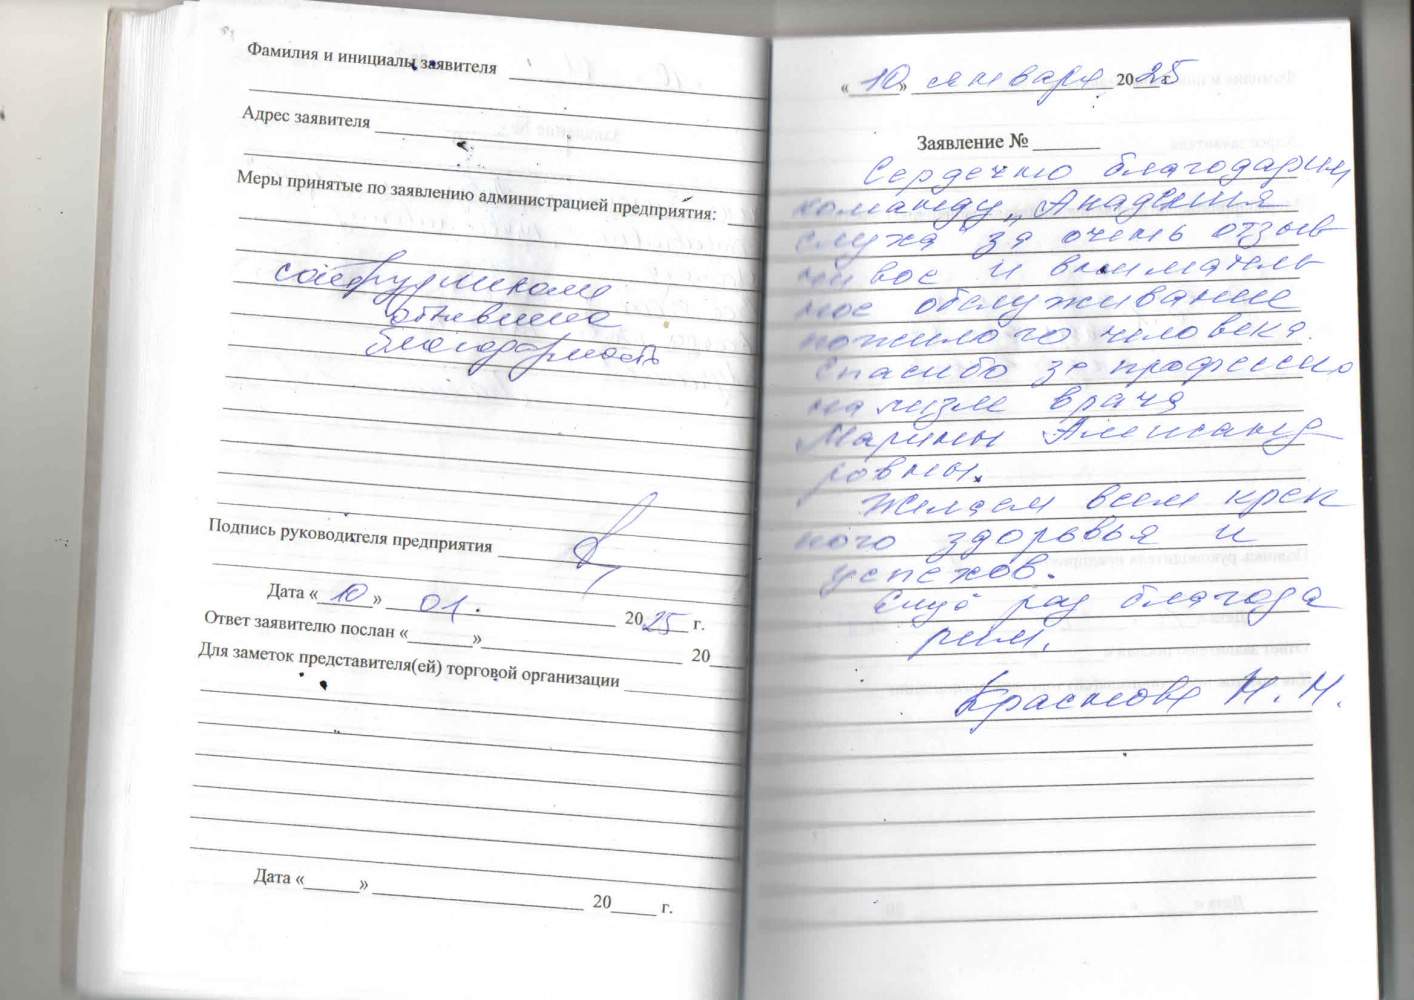 Фамилия и инициалы заявителя
Адрес заявителя
Меры принятые по заявлению администрацией предприятия:
объявлена
благодарность
Подпись руководителя предприятия
Дата «10» 01. 2025 г.
Ответ заявителю послан «___» 20
Для заметок представителя(ей) торговой организации
Дата «___» 20___ г.
«10» января 2025 г.
Заявление №
Сердечно благодарим
команду „Академия
слуха" за очень отзыв
чивое и вниматель
ное обслуживание
пожилого человека.
Спасибо за профессио
нализм врача
Марины Александ
ровны.
Желаем всем креп
кого здоровья и
успехов.
Ещё раз благода
рим.
Краснова Н. Н.